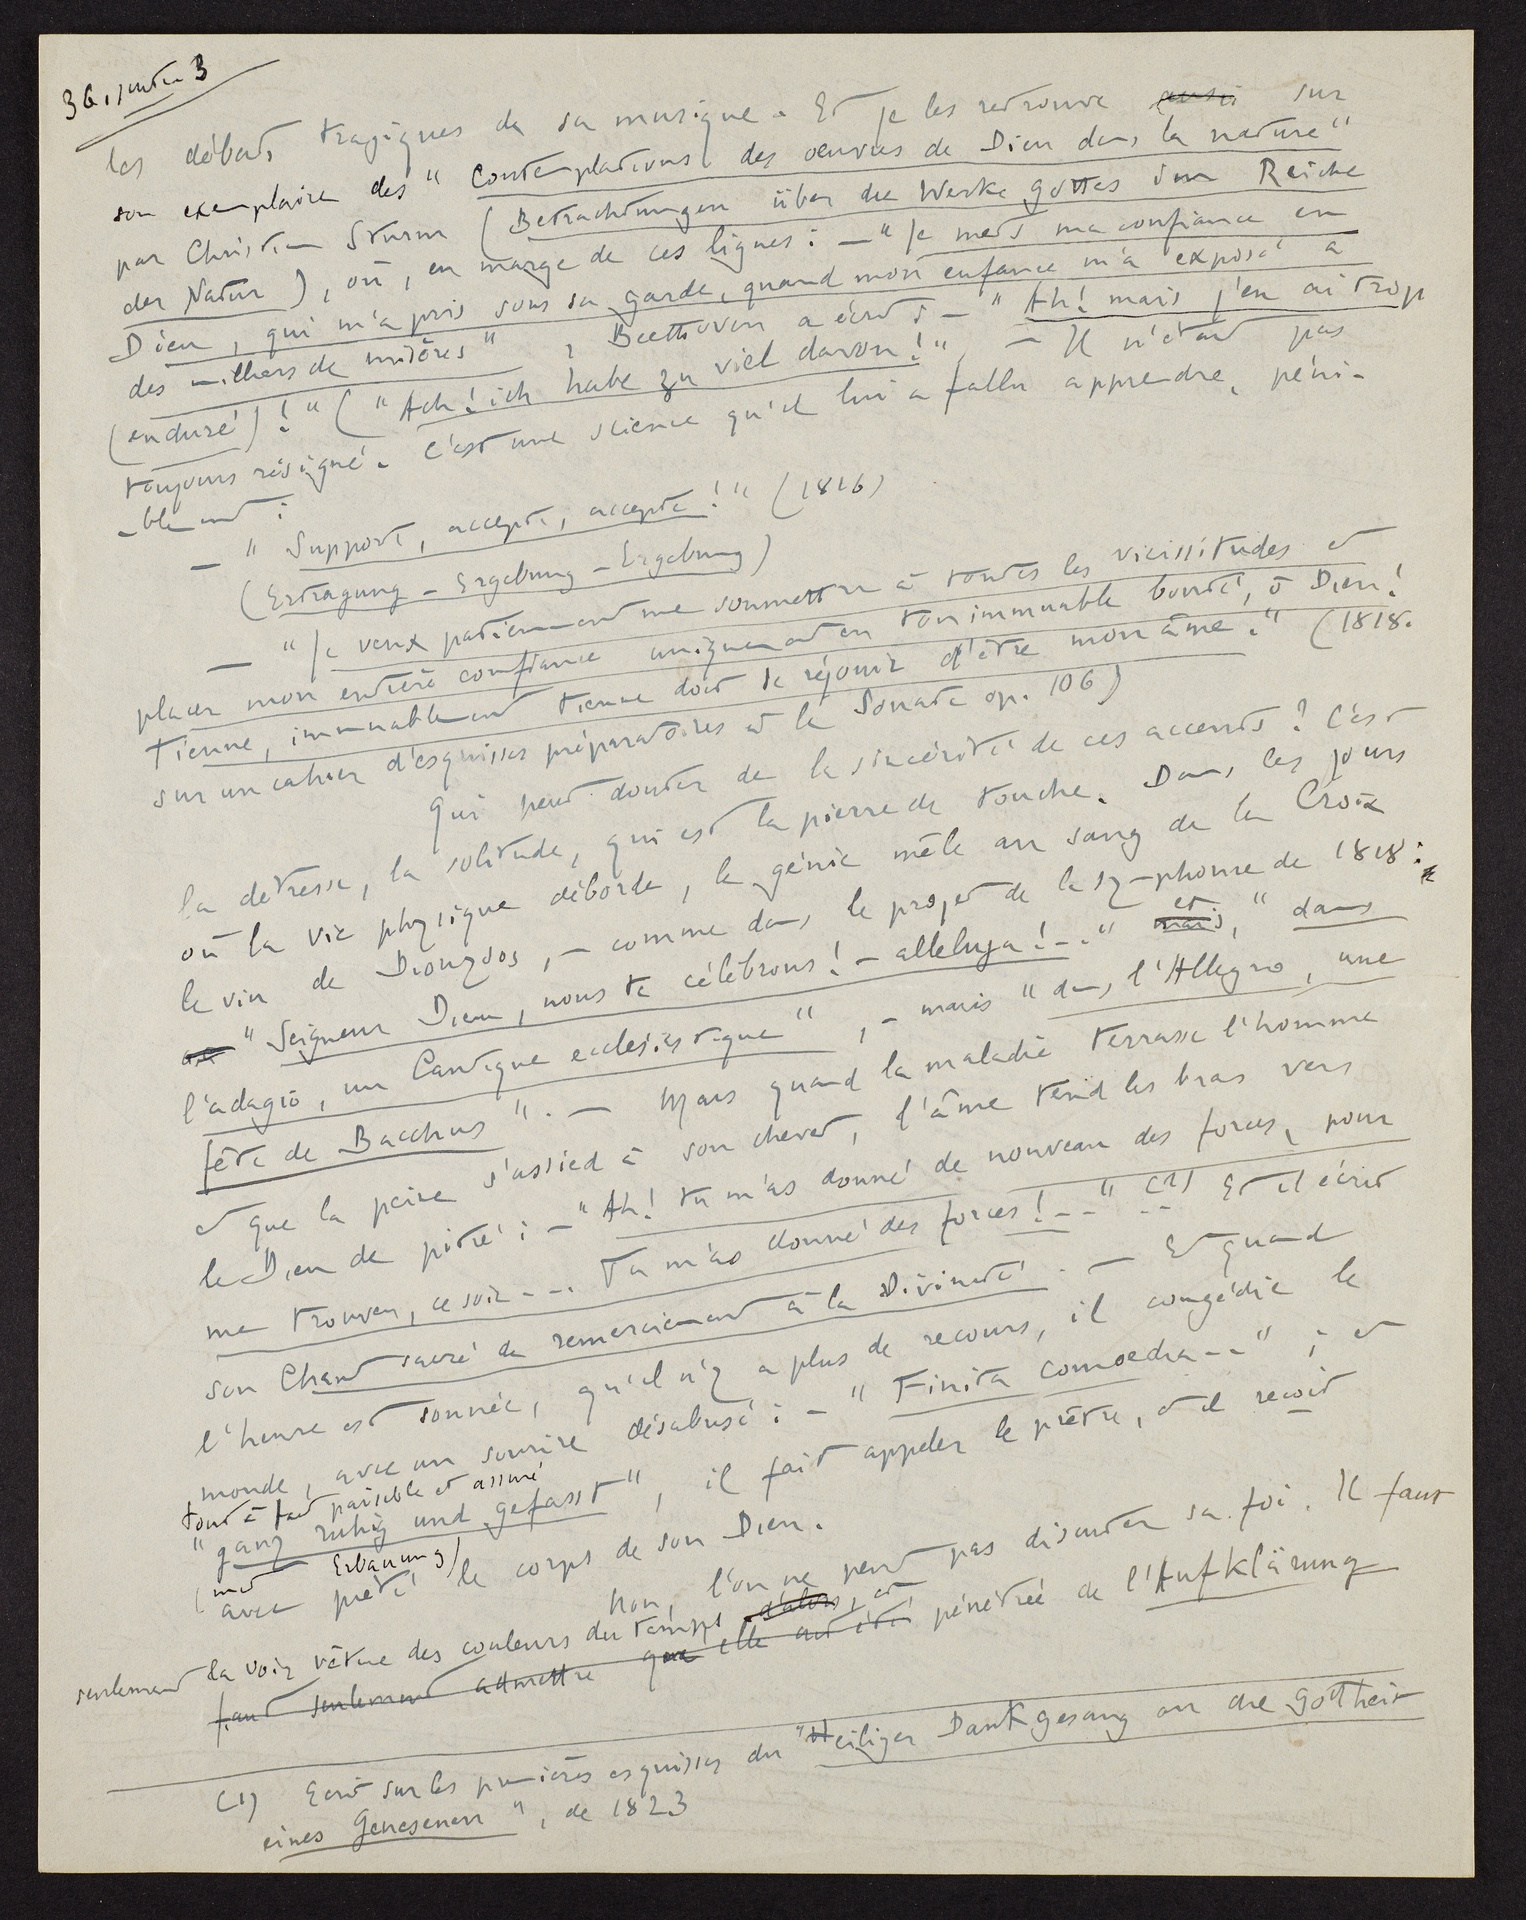 les débats tragiques de sa musique. Et je les retrouve sur
son exemplaire des "Contemplations des œuvres de Dieu dans la nature"
par Christian Sturm (Betrachtungen über die Werke Gottes im Reiche
der Natur), où, en marge de ces lignes : — "Je mets ma confiance en
Dieu, qui m'a pris sous sa garde, quand mon enfance m'a exposé à
des milliers de misères", Beethoven a écrit : — "Ah! mais j'en ai trop
(enduré)!" ("Ach! ich habe zu viel davon!") — Il n'était pas
toujours résigné. C'est une science qu'il lui a fallu apprendre, péni-
-blement :
— "Support, accepte, accepte!" (1816)
(Ertragung – Ergebung – Ergebung)
— "Je veux patiemment me soumettre à toutes les vicissitudes et
placer mon entière confiance uniquement en ton immuable bonté, ô Dieu!
Tienne, immuablement tienne doit se réjouir d'être mon âme." (1818.
sur un cahier d'esquisses préparatoires à la Sonate op. 106)
Qui peut douter de la sincérité de ces accents? C'est
la détresse, la solitude, qui est la pierre de touche. Dans les jours
où la vie physique déborde, le génie mêle au sang de la Croix
le vin de Dionysos, — comme dans le projet de la symphonie de 1818 :
"Seigneur Dieu, nous te célébrons! – alleluja! –." mais et, "dans
l'adagio, un Cantique ecclésiastique", – mais "dans l'Allegro, une
fête de Bacchus". — Mais quand la maladie terrasse l'homme
et que la peine s'assied à son chevet, l'âme tend les bras vers
le Dieu de pitié : — "Ah! tu m'as donné de nouveau des forces, pour
me trouver, ce soir... Tu m'as donné des forces!.." (1) Et il écrit
son Chant sacré de remerciement à la Divinité. — Et quand
l'heure est sonnée, qu'il n'y a plus de recours, il congédie le
monde, avec un sourire désabusé : — "Finita comoedia.." ; et
tout à fait paisible et assuré
"ganz ruhig und gefasst", il fait appeler le prêtre, et il reçoit
(mit Erbauung)
avec piété le corps de son Dieu.
Non, l'on ne peut pas discuter sa foi. Il faut
seulement la voir vêtue des couleurs du temps d'alors, et
faut seulement admettre que elle ait été pénétrée de l'Aufklärung
(1) Écrit sur les premières esquisses du "Heiliger Dankgesang an die Gottheit
eines Genesenen", de 1823